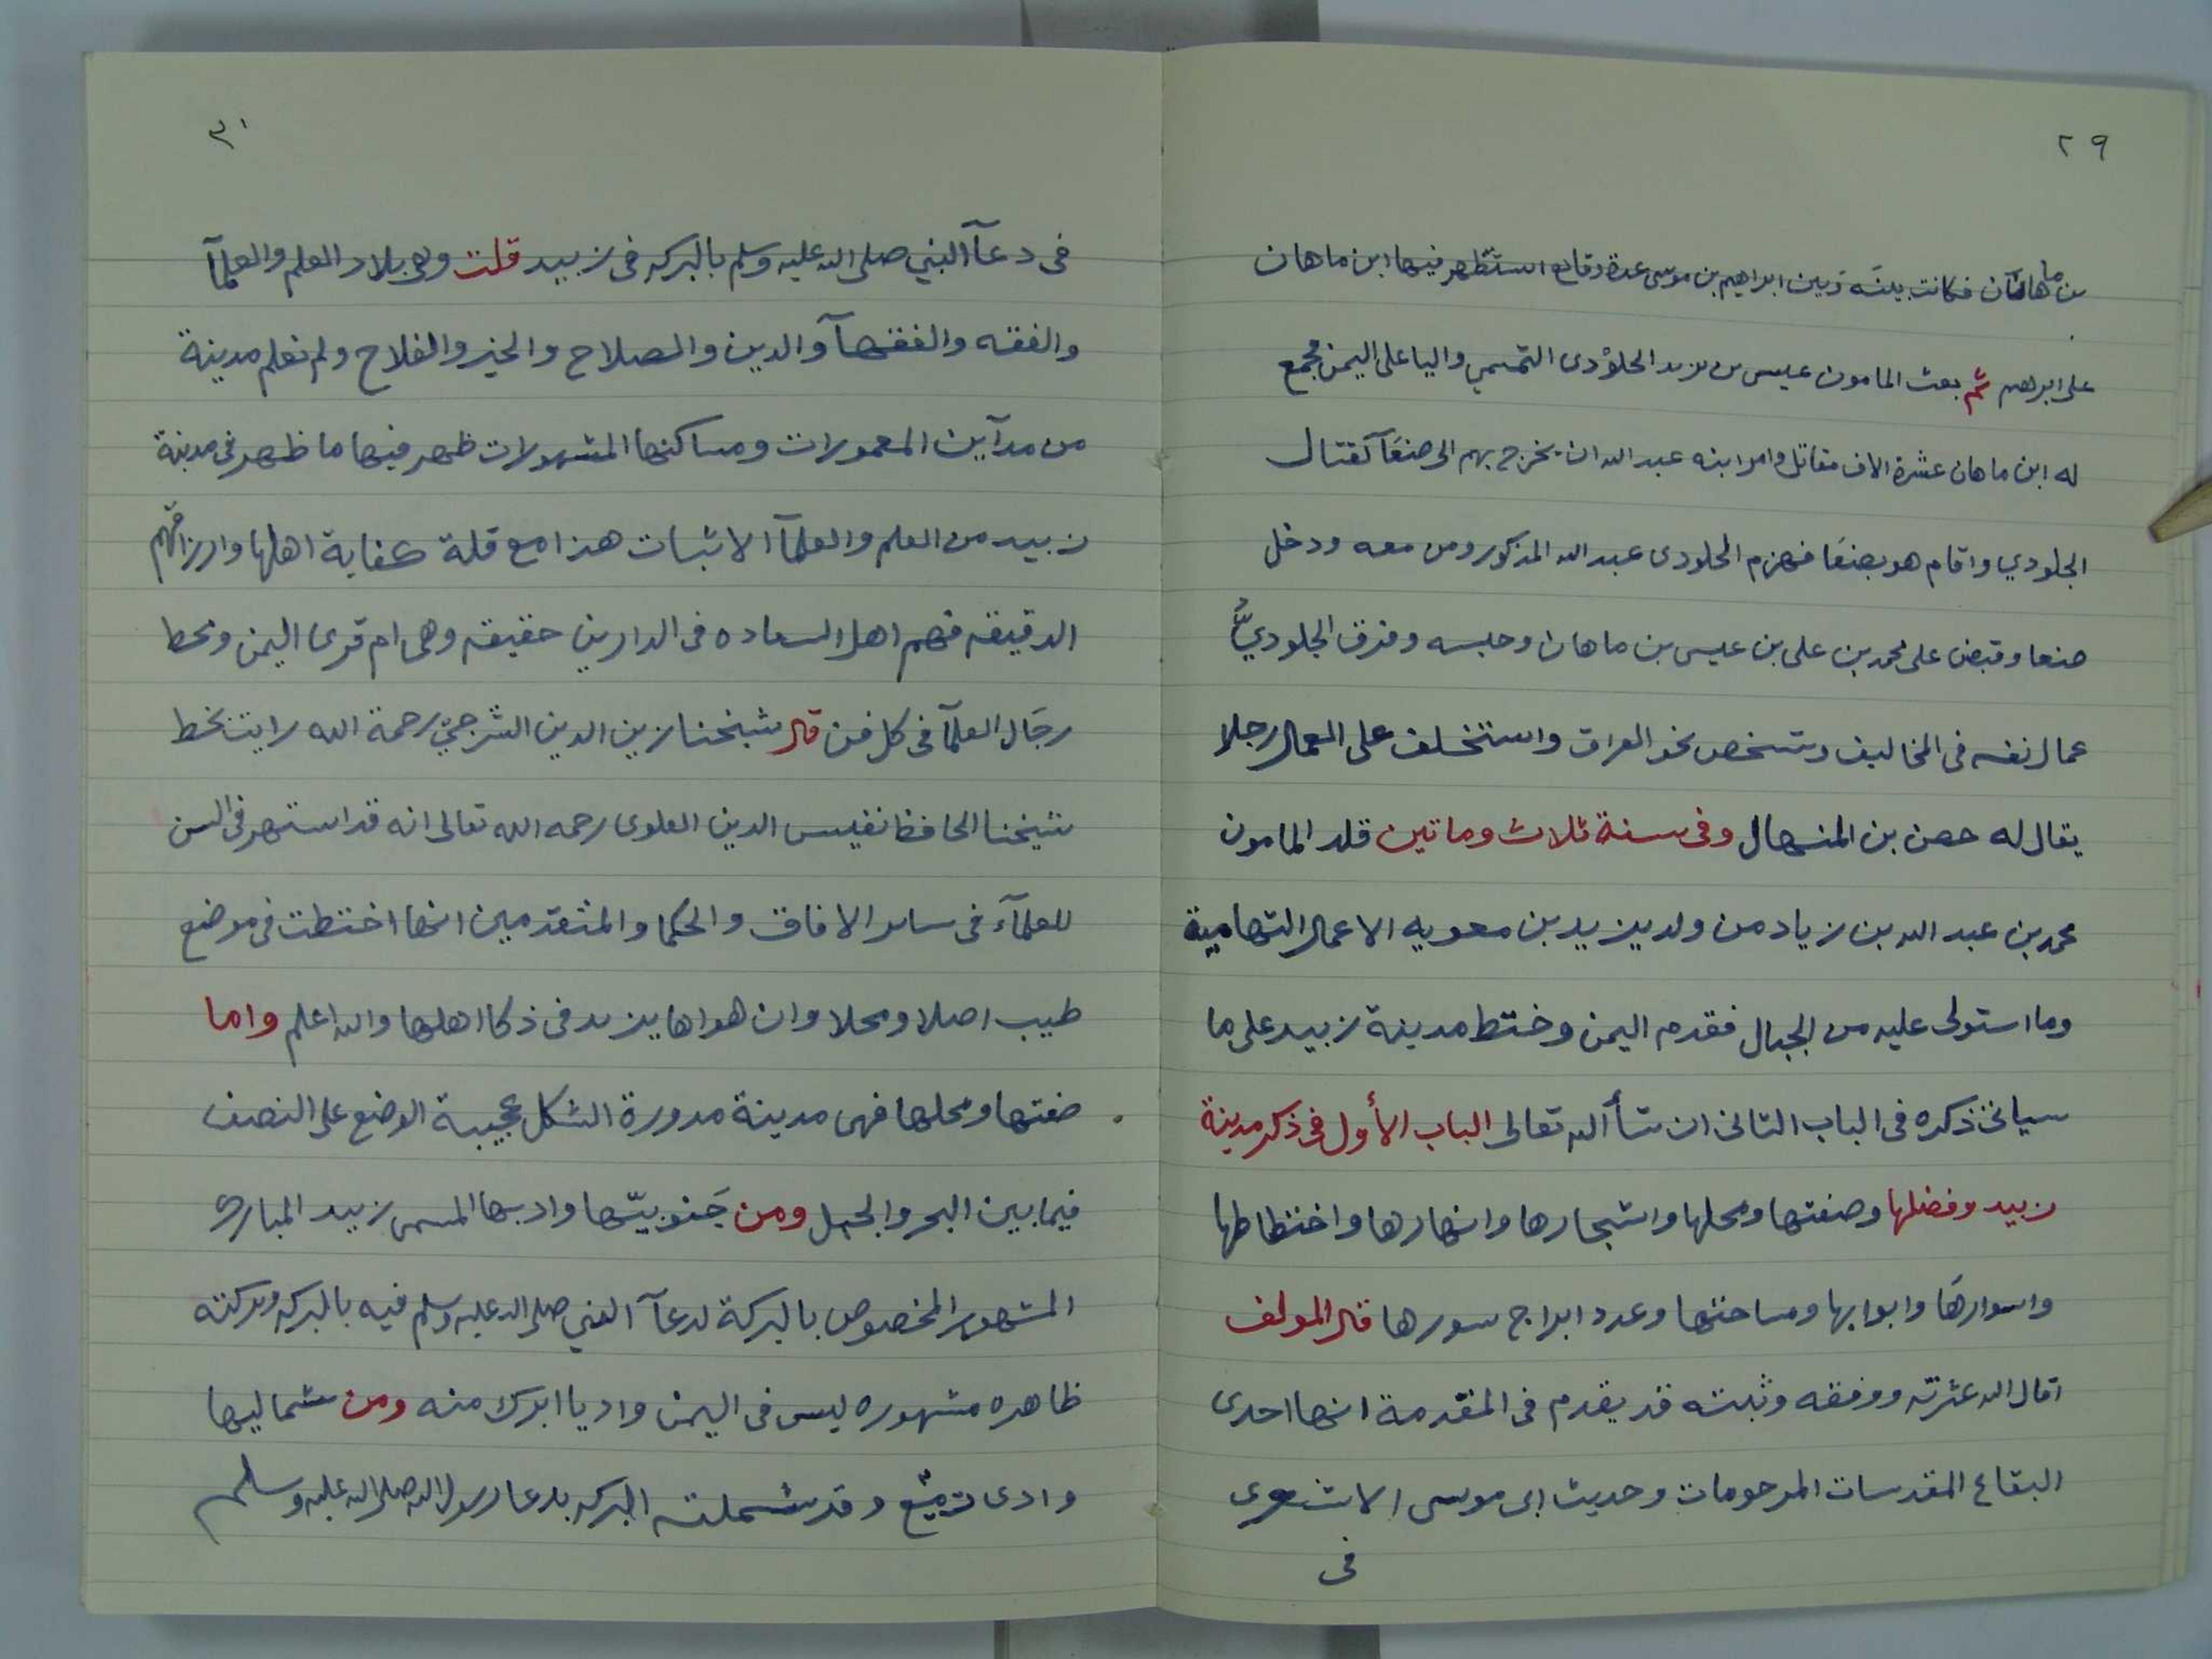 ٢٩
بن ماهان فكانت بينه وبين ابراهيم بن موسى عدة وقايع استظهر فيها ابن ماهان
على ابرهيم ثم بعث المامون عيسى بن يزيد الجلوْدى التميمي واليا على اليمن فجمع
له ابن ماهان عشرة الاف مقاتل وامر ابنه عبد الله ان يخرج بهم الى صنعآ لقتال
الجلودي واقام هو بصنعا فهزم الجلودى عبد الله المذكور ومن معه ودخل
صنعا وقبض على محمد بن على بن عيسى بن ماهان وحبسه وفرق الجلوديُّ
عمال نفسه فى المخاليف وشخص نحو العراق واستخلف على العمال رجلا
يقال له حصن بن المنهال وفى سنة ثلاث وماتين قلد المامون
محمد بن عبد الله بن زياد من ولد يزيد بن معويه الاعمال التهامية
وما استولى عليه من الجبال فقدم اليمن وختط مدينة زبيد على ما
سياتى ذكره فى الباب الثانى ان شآ الله تعالى الباب الأول فى ذكر مدينة
زبيد وفضلها وصفتها ومحلها واشجارها وانهارها واختطاطها
واسوارهَا وابوابها ومساحتها وعدد ابراج سورها قال المولف
اقال الله عثرته ووفقه وثبته قد يقدم فى المقدمة انها احدى
البقاع المقدسات المرحومات وحديث ابى موسى الاشعرى
فى
٣٠
فى دعآ النبي صلى الله عليه وسلم بالبركه فى زبيد قلت وهى بلاد العلم والعلمآ
والفقه والفقهآ والدين والصلاح والخير والفلاح ولم نعلم مدينة
من مدآين المعمورات ومساكنها المشهورات ظهر فيها ما ظهر فى مدينة
زبيد من العلم والعلمآ الاثبات هذا مع قلة كفاية اهلها وارزاقهم
الدقيقه فهم اهل السعاده فى الدارين حقيقه وهى ام قرى اليمن ومحط
رحَال العلمآ فى كل فن قال شيخنا زين الدين الشرجيّ رحمة الله رايت بخط
شيخنا الحافظ نفيس الدين العلوى رحمه الله تعالى انه قد استهر فى السن
للعلمآء فى ساير الافاق والحكما والمتقدمين انها اختطت فى موضع
طيب اصلا ومحلا وان هواها يزيد فى ذكا اهلها والله اعلم واما
ضفتها ومحلها فهى مدينة مدورة الشكل عجيبة الوضع على النصف
فيما بين البحر والجبل ومن جَنوبيّها واديها المسمى زبيد المبارك
المشهور المخصوص بالبركة لدعآ النبي صلى الله عليه وسلم فيه بالبركه وبركته
ظاهره مشهوره ليس فى اليمن واديا ابرك منه ومن شماليها
وادى رمع وقد شملته البركه بدعا رسول الله صلى الله عليه وسلم